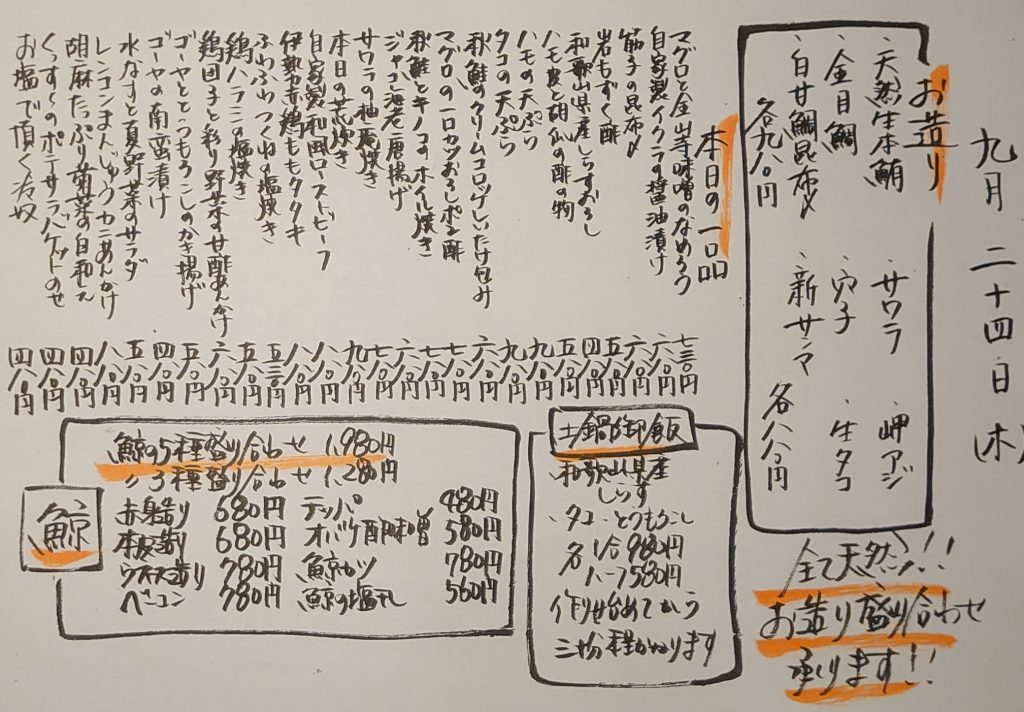 九月二十四日(木)
お造り
・天然生本鮪 ・サワラ ・岬アジ
・金目鯛 ・穴子 ・生タコ
・白甘鯛昆布〆 ・新サンマ
各九八〇円 各八八〇円
全て天然!!
お造り盛り合わせ
承ります!!
本日の一品
マグロと金山寺味噌のなめろう 七三〇円
自家製イクラの醤油漬け 六八〇円
筋子の昆布〆 六八〇円
岩もずく酢 五八〇円
和歌山県産しらすおろし 四八〇円
ハモ皮と胡瓜の酢の物 五八〇円
ハモの天ぷら 九八〇円
タコの天ぷら 九八〇円
秋鮭のクリームコロッケしいたけ包み 六八〇円
マグロの一口カツおろしポン酢 七八〇円
秋鮭とキノコのホイル焼き 七八〇円
ジャコ海老唐揚げ 六八〇円
サワラの柚庵焼き 七八〇円
本日の荒炊き 九八〇円
自家製和風ローストビーフ 八八〇円
伊勢赤鶏ももタタキ 八八〇円
ふわふわつくねの塩焼き 五三〇円
鶏ハラミの塩焼き 五八〇円
鶏団子と彩り野菜の甘酢あんかけ 六八〇円
ゴーヤととうもろこしのかき揚げ 五八〇円
ゴーヤの南蛮漬け 四八〇円
水なすと夏野菜のサラダ 五八〇円
レンコンまんじゅうカニあんかけ 八八〇円
胡麻たっぷり菊菜の白和え 四八〇円
のポテサラバゲットのせ 四八〇円
お塩で頂く冷奴 四八〇円
土鍋御飯
・和歌山県産
しらす
・タコ ・とうもろこし
各1合980円
ハーフ580円
作り始めてから
三十分程かかります
鯨
鯨の5種盛り合わせ 1,980円
〃3種盛り合わせ 1,280円
赤身造り 680円 テッパ 480円
本皮造り 680円 オバケ酢味噌 580円
ウネス造り 780円 鯨カツ 780円
ベーコン 780円 鯨の塩タレ 560円